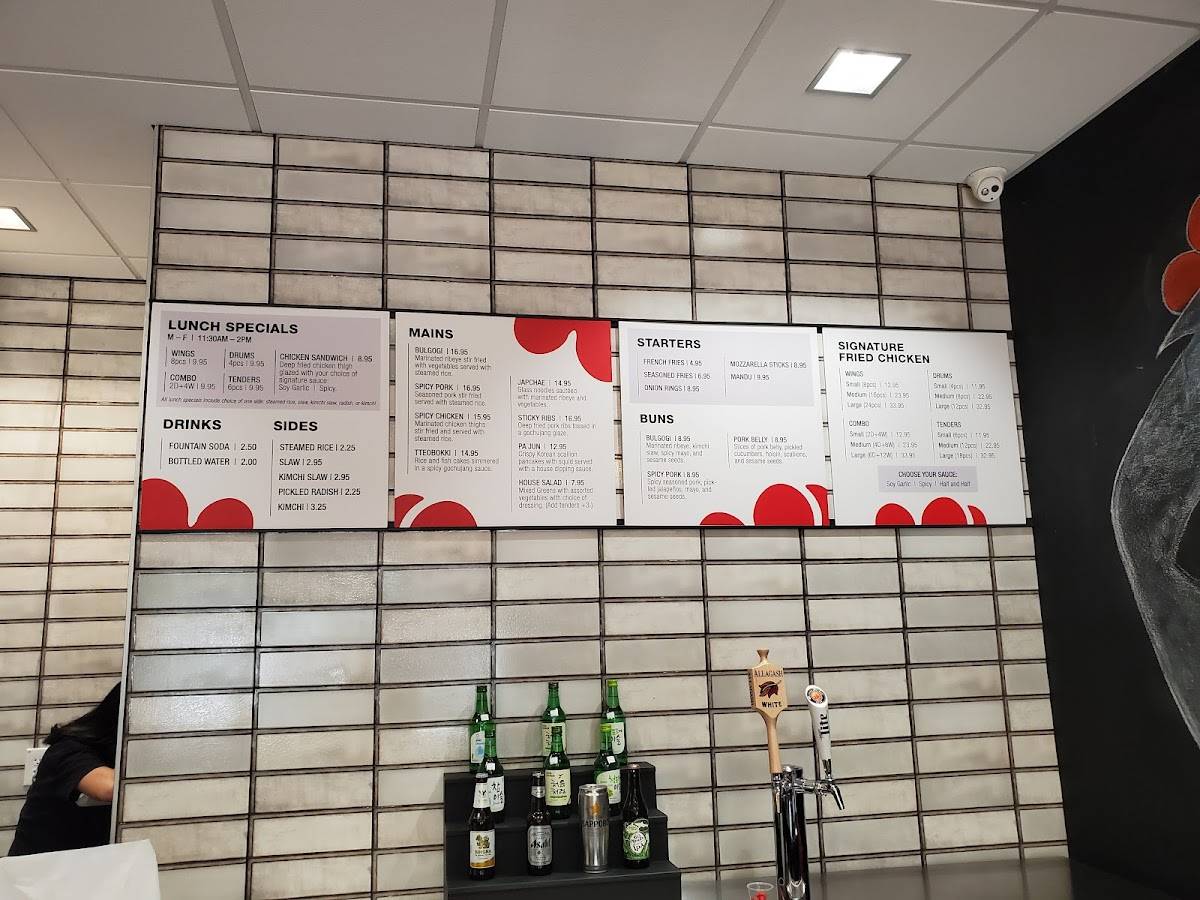 LUNCH SPECIALS
M – F | 11:30AM – 2PM
WINGS
8pcs | 9.95
DRUMS
4pcs | 9.95
CHICKEN SANDWICH | 8.95
Deep fried chicken thigh
glazed with your choice of
signature sauce:
Soy Garlic | Spicy
COMBO
2D+4W | 9.95
TENDERS
6pcs | 9.95
All lunch specials include choice of one side: steamed rice, slaw, kimchi slaw, radish, or kimchi
DRINKS
FOUNTAIN SODA | 2.50
BOTTLED WATER | 2.00
SIDES
STEAMED RICE | 2.25
SLAW | 2.95
KIMCHI SLAW | 2.95
PICKLED RADISH | 2.25
KIMCHI | 3.25
MAINS
BULGOGI | 16.95
Marinated ribeye stir fried
with vegetables served with
steamed rice.
SPICY PORK | 16.95
Seasoned pork stir fried
served with steamed rice.
SPICY CHICKEN | 15.95
Marinated chicken thighs
stir fried and served with
steamed rice.
TTEOBOKKI | 14.95
Rice and fish cakes simmered
in a spicy gochujang sauce.
JAPCHAE | 14.95
Glass noodles sauteed
with marinated ribeye and
vegetables.
STICKY RIBS | 16.95
Deep fried pork ribs tossed in
a gochujang glaze.
PA JUN | 12.95
Crispy Korean scallion
pancakes with squid served
with a house dipping sauce.
HOUSE SALAD | 7.95
Mixed Greens with assorted
vegetables with choice of
dressing. (Add tenders +3.)
STARTERS
FRENCH FRIES | 4.95
SEASONED FRIES | 6.95
ONION RINGS | 8.95
MOZZARELLA STICKS | 8.95
MANDU | 9.95
BUNS
BULGOGI | 8.95
Marinated ribeye, kimchi
slaw, spicy mayo, and
sesame seeds.
SPICY PORK | 8.95
Spicy seasoned pork, pick-
led jalapeños, mayo, and
sesame seeds.
PORK BELLY | 8.95
Slices of pork belly, pickled
cucumbers, hoisin, scallions,
and sesame seeds.
SIGNATURE
FRIED CHICKEN
WINGS
Small (8pcs) | 12.95
Medium (16pcs) | 23.95
Large (24pcs) | 33.95
DRUMS
Small (4pcs) | 11.95
Medium (8pcs) | 22.95
Large (12pcs) | 32.95
COMBO
Small (2D+4W) | 12.95
Medium (4D+8W) | 23.95
Large (6D+12W) | 33.95
TENDERS
Small (6pcs) | 11.95
Medium (12pcs) | 22.95
Large (18pcs) | 32.95
CHOOSE YOUR SAUCE:
Soy Garlic | Spicy | Half and Half
ALLAGASH
WHITE
Lite
Asahi
SAPPORO